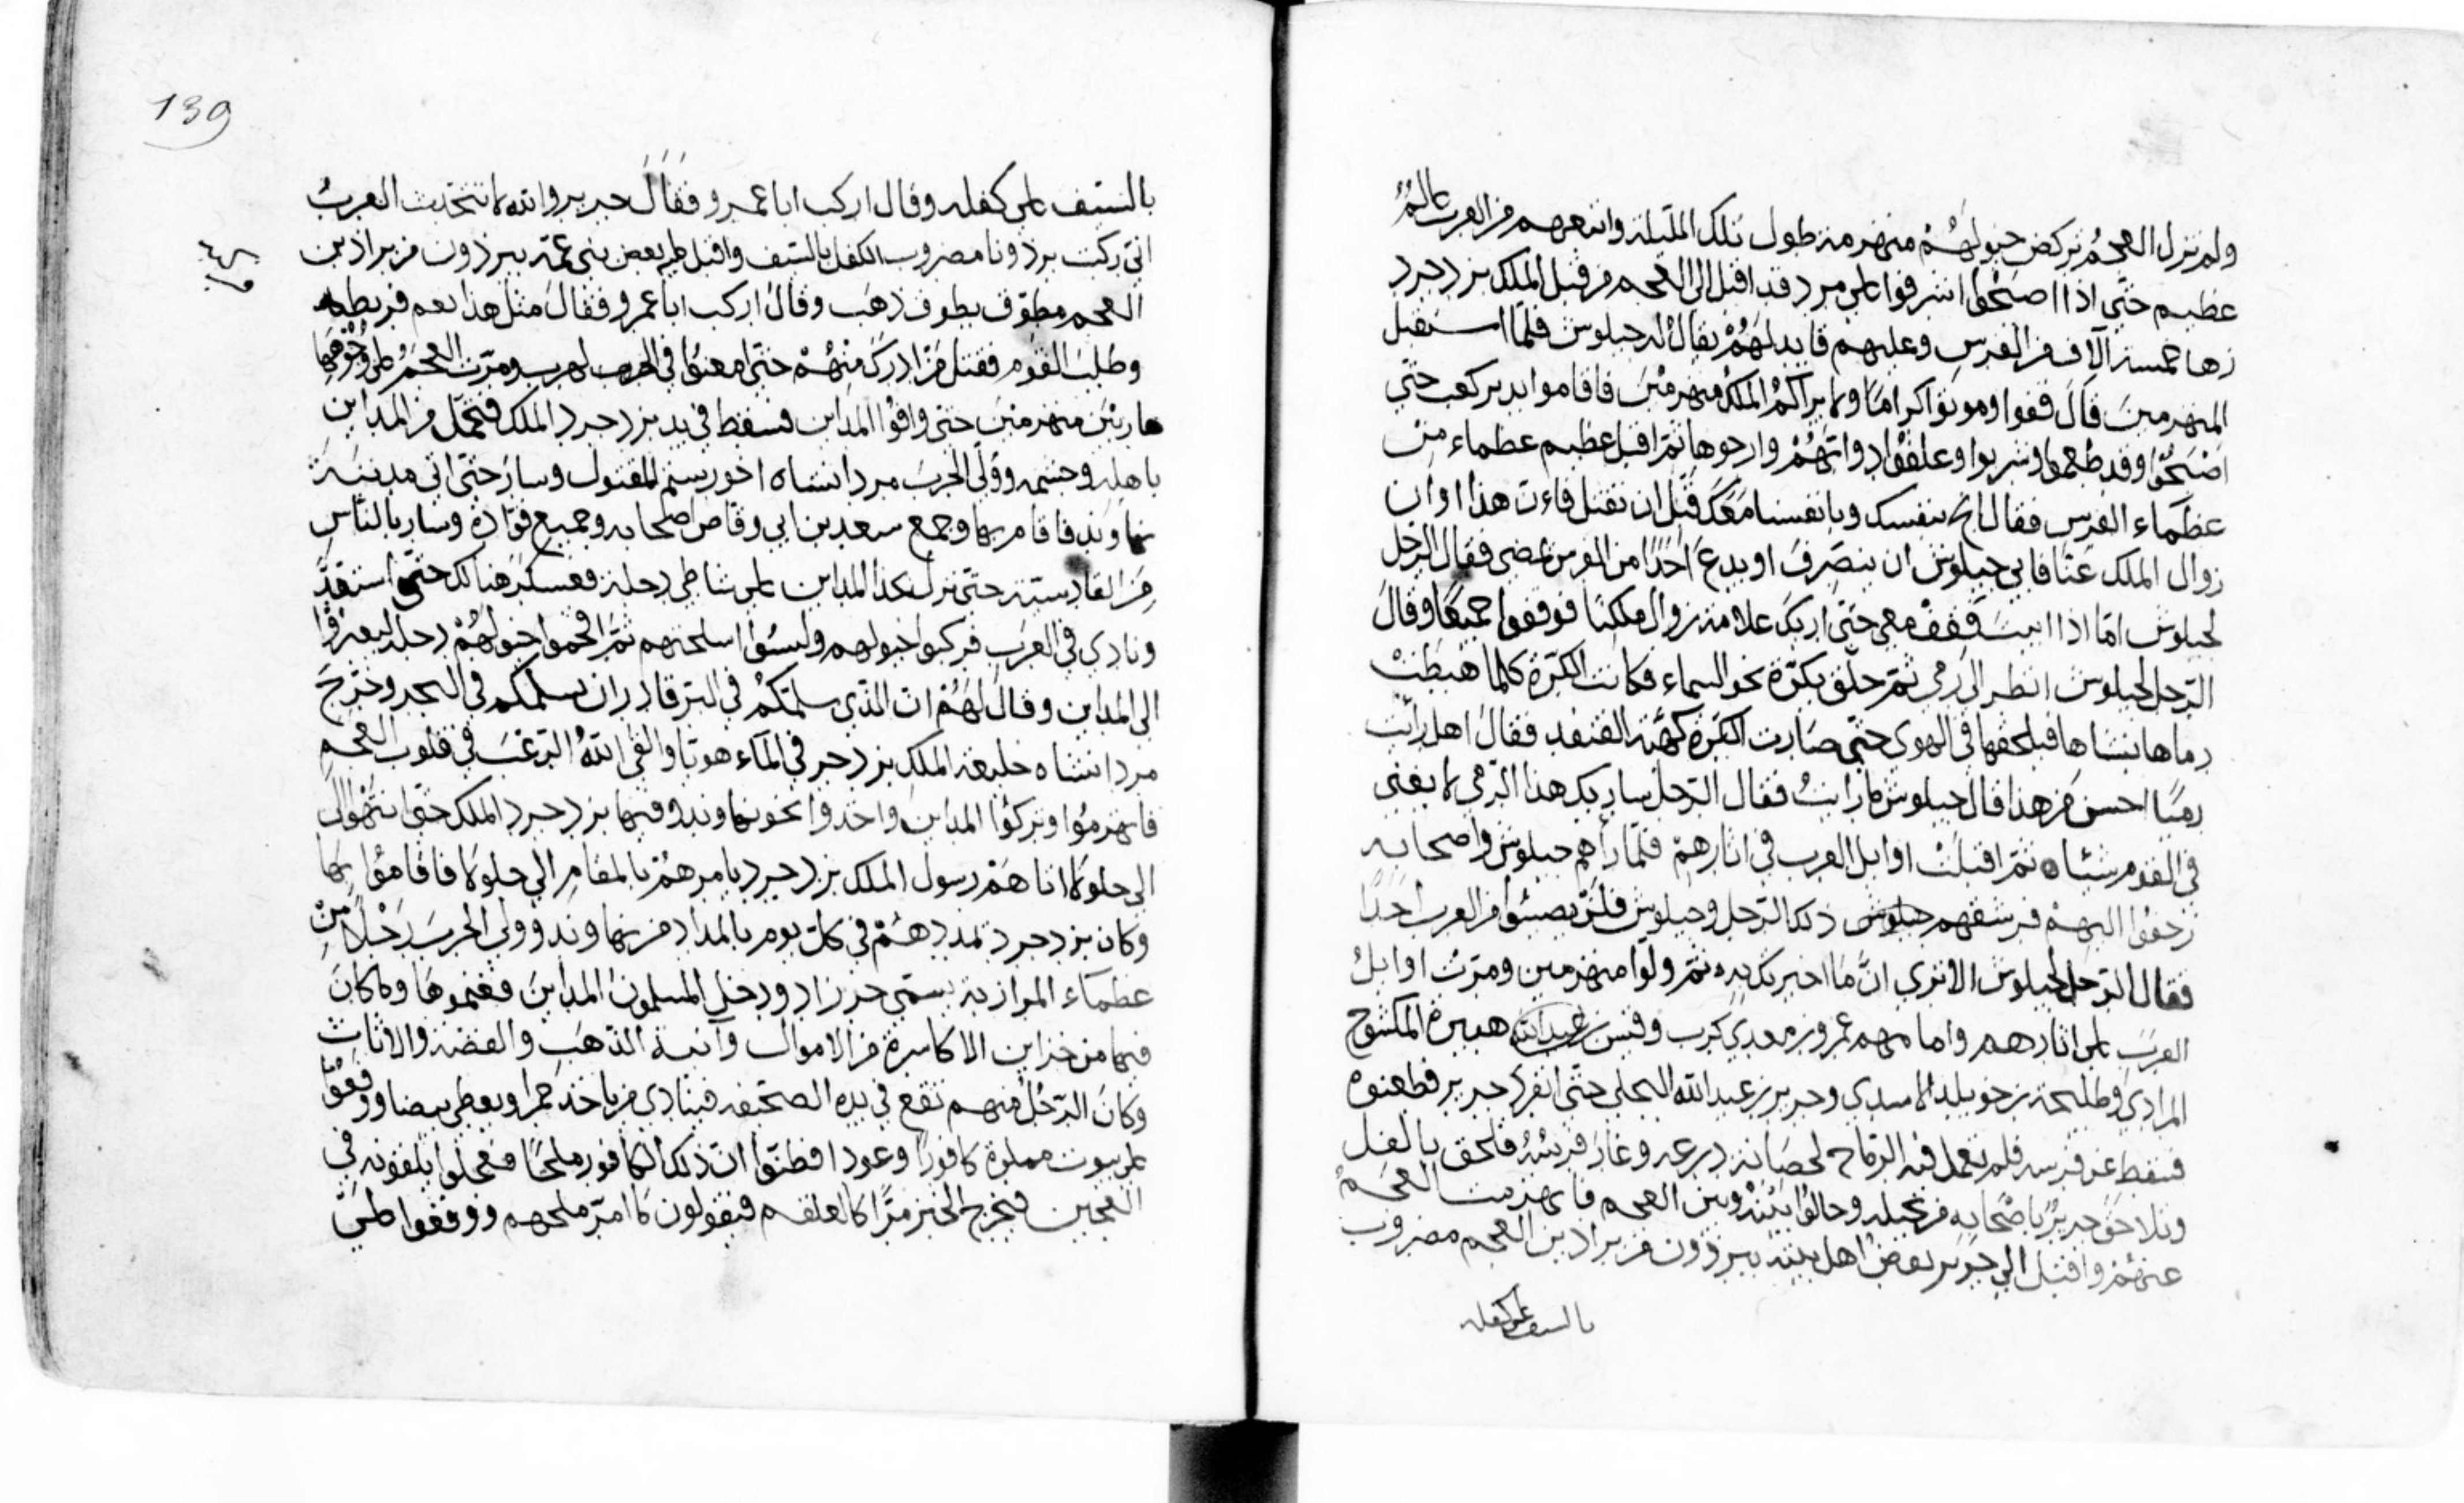 ولم تزل العجمُ تركض خيولهُمْ منهزمة طول تلك الليلة واتبعهم من العرب عالمٌ
عظيم حتّى اذا اصبَحُوا اشرفوا على مردٍ قد اقبل الى العجم من قبل الملك يزدجرد
زها خمسة آلاف من الفرس وعليهم قايد لهُمْ يقالُ له جيلوس فلمّا استقبل
المنهزمين قال قفوا وموتوا كرامًا ولا يراكمُ الملك منهزمين فاقاموا بدير كعب حتّى
اصْبَحُوا وقد طعموا وشربوا وعلفوا دوابّهُمْ واراحوها ثمّ اقبل عظيم عظماء من
عظمَاء الفرس فقال انج بنفسك وبانفسنا معَكَ قبْل ان نقتل فاءن هذا اوان
زوال الملك عنّا فابى جيلوس ان ينصَرفَ او يدعَ احَدًا من الفرس يمضي فقال الرجل
لجيلوس امّا اذا ابيتَ فقف معي حتى اريكَ علامة زوال ملكنا فوقفوا جميعًا وقال
الرّجل لجيلوس انظر الى رمي ثمّ حلّق بكرّة نحو السماء فكانت الكرّة كلما هبطتْ
رماها بنشابها فيلحقها في الهوى حتّى صَارت الكرّة كهَيْئة القنفد فقال اهل رايت
رميًا احسن من هذا قال جيلوس ما رايتُ فقال الرّجل ساريك هذا الرّمي لا يغني
في القوم شيئا ه ثمّ اقبلتْ اوايل العرب في اثارهمْ فلمّا رآهم جيلوس واصحابه
زحفوا اليهمْ فرشقهم جيلوس ذلك الرّجل وجيلوس فلمْ يصيبُوا من العرب احَدًا
فقال الرّجل لجيلوس الا ترى انّ مَا اخبرتك به ثمّ ولّوا منهزمين ومرّت اوايلُ
العربَ على اثارهم وامامهم عمرو بن معدي كرب وقيس بن عبد الله هبيرة المكشوح
المرادي وطليحة بن خويلد الاسدي وجرير بن عبد الله البجلي حتّى انفرد جرير فطعنوه
فسقط عن فرسه فلم تعمل فيه الرّماح لحصَانة درعه وغار فرسُهُ فلحق بالفل
وتلاحَقَ جريرُ باصْحَابه من بجيلة وحالوُا بيْنهُ وبين العجم فانهزمت العجمُ
عنهُمْ واقبل الى جرير بعضُ اهل بيته ببرذون من براذين العجم مضروب
بالسيف على كفله
139
بالسّيف على كفله وقال اركب ابا عمرو فقَالَ جرير والله لا تتحدّث العربُ
انّي ركبت برذونا مضروب الكفل بالسّيف واقبل اليه بعض بني عمّه ببرذون من براذين
العجم مطوّق بطوق ذهَب وقالَ اركب ابا عمرو فقالَ مثل هذا نعم فركبه
وطلبَ القوم فقتل مَنْ ادركَ منْهُمْ حتّى امعنُوا في الهرب ومرّت العجمُ على وجُوْههَا
هاربينَ منهزمين حتى وافوُا المداين فسقط في يد يزدجرد الملك فتحمّل من المداين
باهله وحشمه وولّى الحربَ مردانشاه اخو رستم المقتول وسارَ حتّى اتى مدينة
نهاوند فاقام بها وجمع سعد بن ابي وقّاص اصحابه وجميع قوّاده وسار بالنّاس
منَ القادسيّة حتّى نزل بكذا المداين على شاطي دجلة فعسكرَ هنالك حتّى استقدّ
ونادي في العرَب فركبوا خيولهم ولبسُوا اسلحتهم ثمّ اقحموا خيولهُمْ دجلة ليعبرُوا
الى المداين وقال لهُمْ انّ الذي سلّمكُمْ في البرّ قادر ان يسلّمكم في البحر وخرَجَ
مردانشاه خليفة الملك يزدجر في المَآء هوبا والقى اللهُ الرّعْبَ في قلوب العجم
فانهزمُوا وتركوُا المداين واخدوا نحو نهاوند وفيها يزدجرد الملك حتى انتهوا
الى جلولا اتاهمْ رسول الملك يزدجرد يامرهُمْ بالمقامِ الي جلولا فاقامُوا بهَا
وكان يزدجرد تمدّدهُمْ في كلّ يوم بالمداد من نهاوند وولي الحربَ رَجُلاً منْ
عظمَاء الموازبة يسمّى خرزاد ودخل المسلمون المداينَ فغنموهَا وما كانَ
فيها من خزاين الاكاسرة من الاموال وآنية الذّهَب والفضّة والاثاث
وكانَ الرّجُلُ منهم تقع في يده الصحيفه فينادي من ياخد حمرا ويعطي بيضا ووقعُوا
على بيوت مملوة كافورًا وعودا فظنّوا انّ ذلك الكافور ملحًا فجعلوا يلقونه في
العجين فيخرج الخبز مرًّا كالعلقم فيقولون مَا امرّ ملحهم ووقفوا على